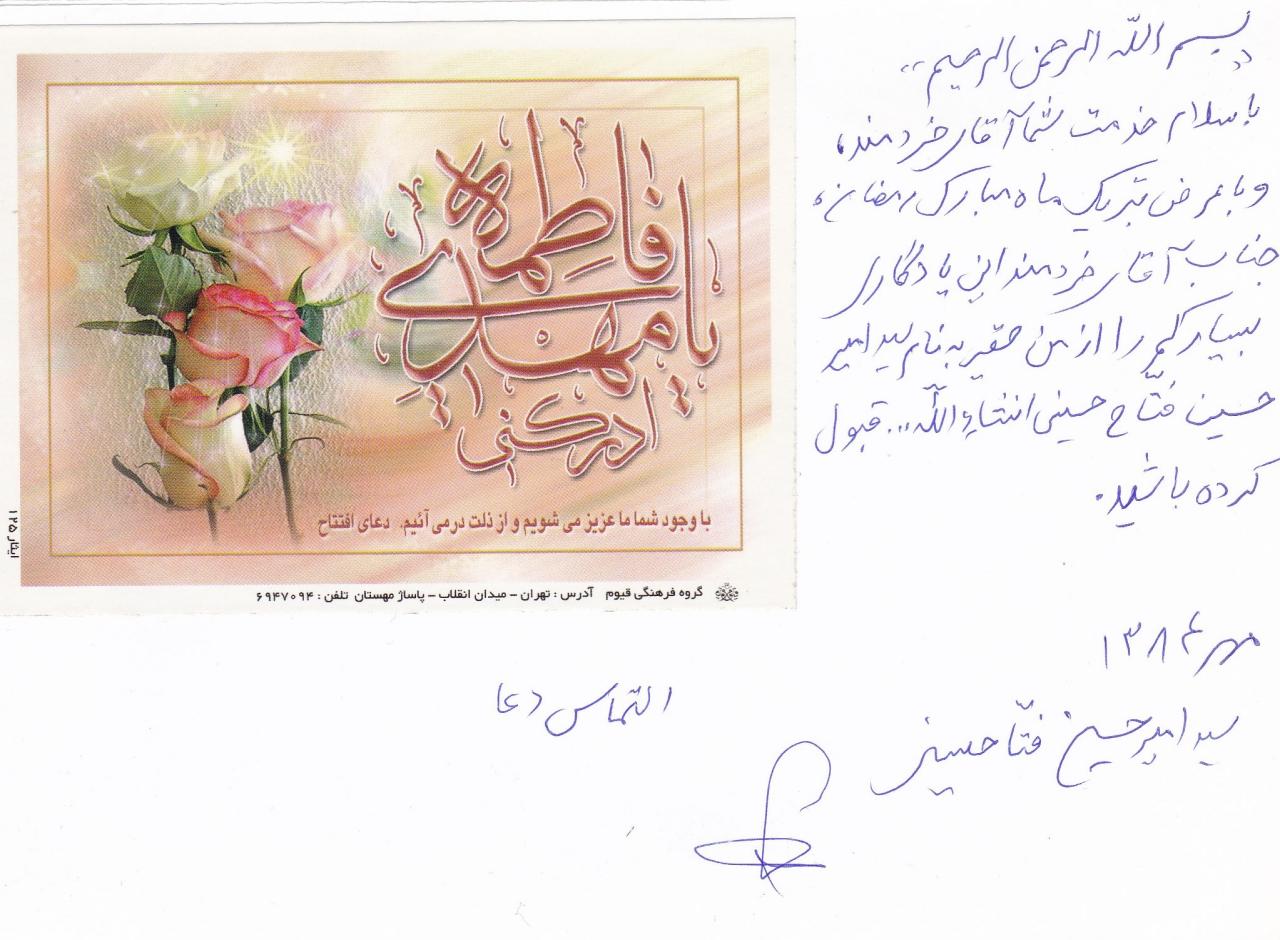 «بسم الله الرحمن الرحیم»
با سلام خدمت شما آقای خردمند،
و با عرض تبریک ماه مبارک رمضان،
جناب آقای خردمند این یادگاری
بسیار کم را از من حقیر به نام سید امیر
حسین فتّاح حسینی انشاءالله... قبول
کرده باشید.
مهر ۱۳۸۴
سید امیرحسین فتّاحسینی
التماس دعا
یا فاطمه
یا مهدی
ادرکنی
با وجود شما ما عزیز می شویم و از ذلت درمی آئیم. دعای افتتاح
گروه فرهنگی قیوم آدرس : تهران – میدان انقلاب – پاساژ مهستان تلفن : ۶۹۴۷۰۹۴
ایثار ۱۲۵